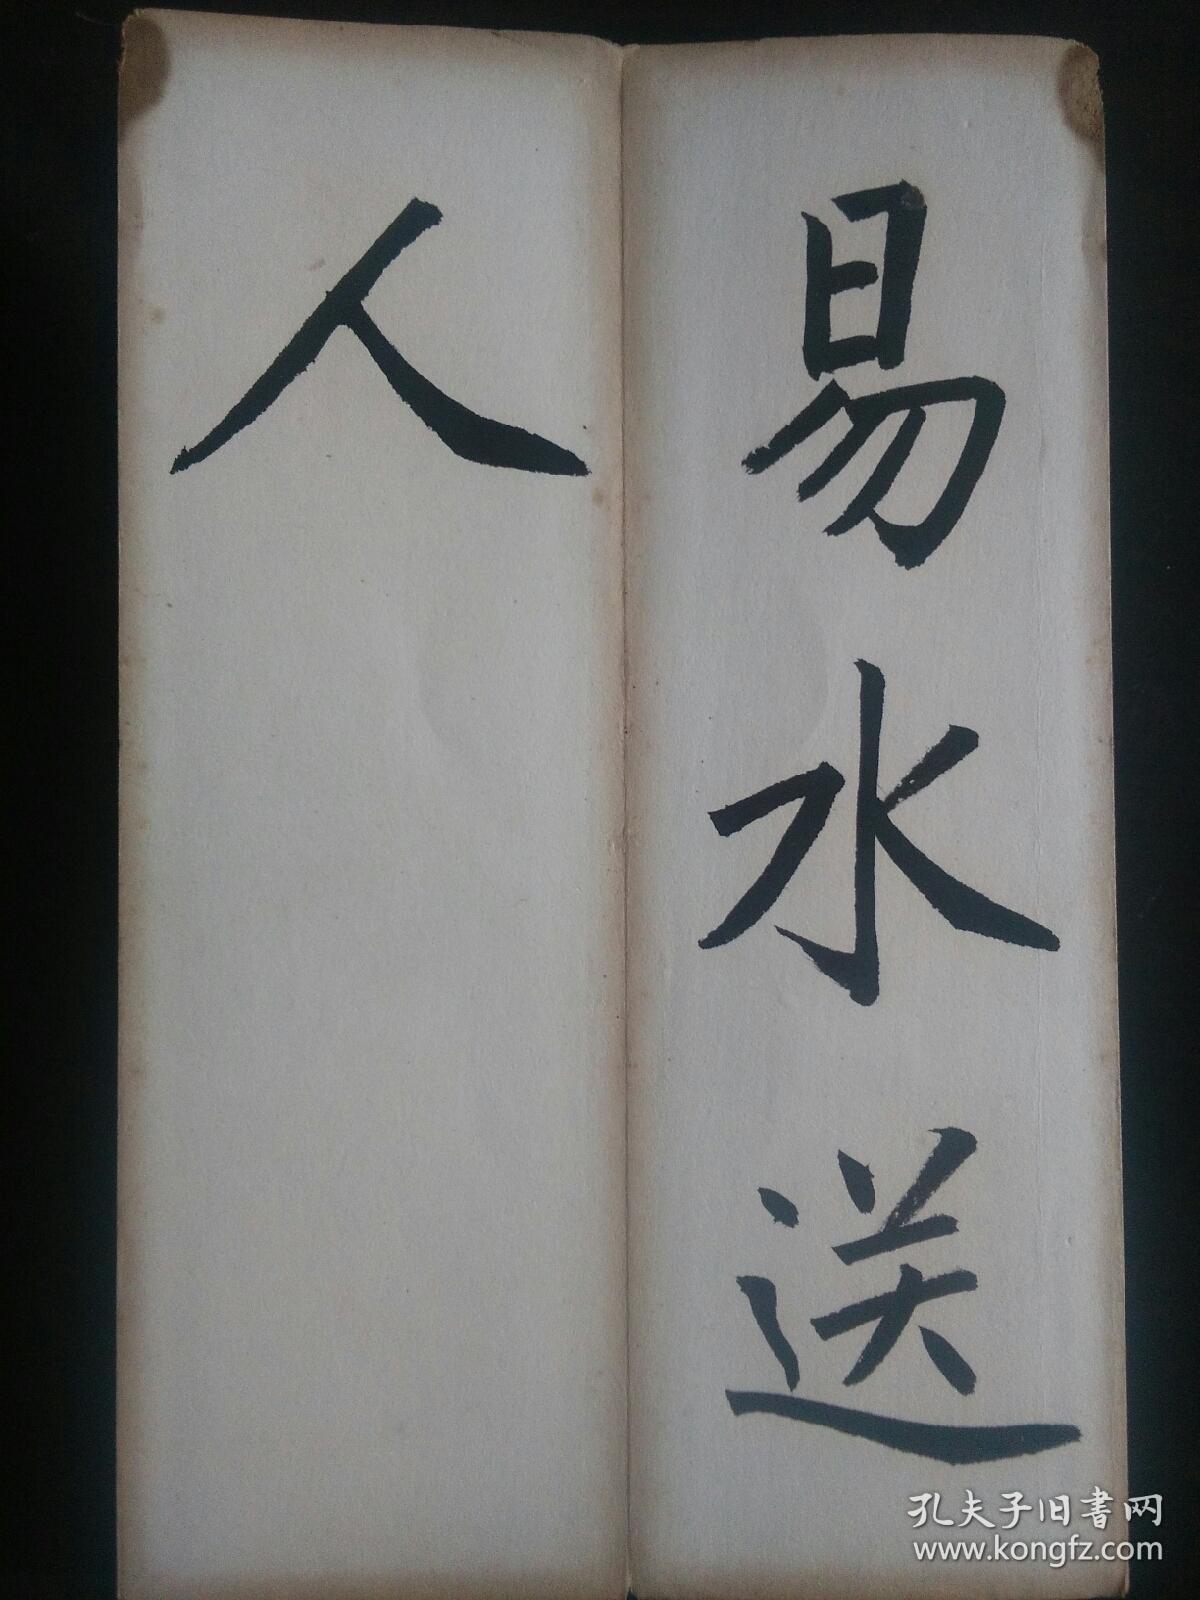 易水送
人
孔夫子旧書网
www.kongfz.com